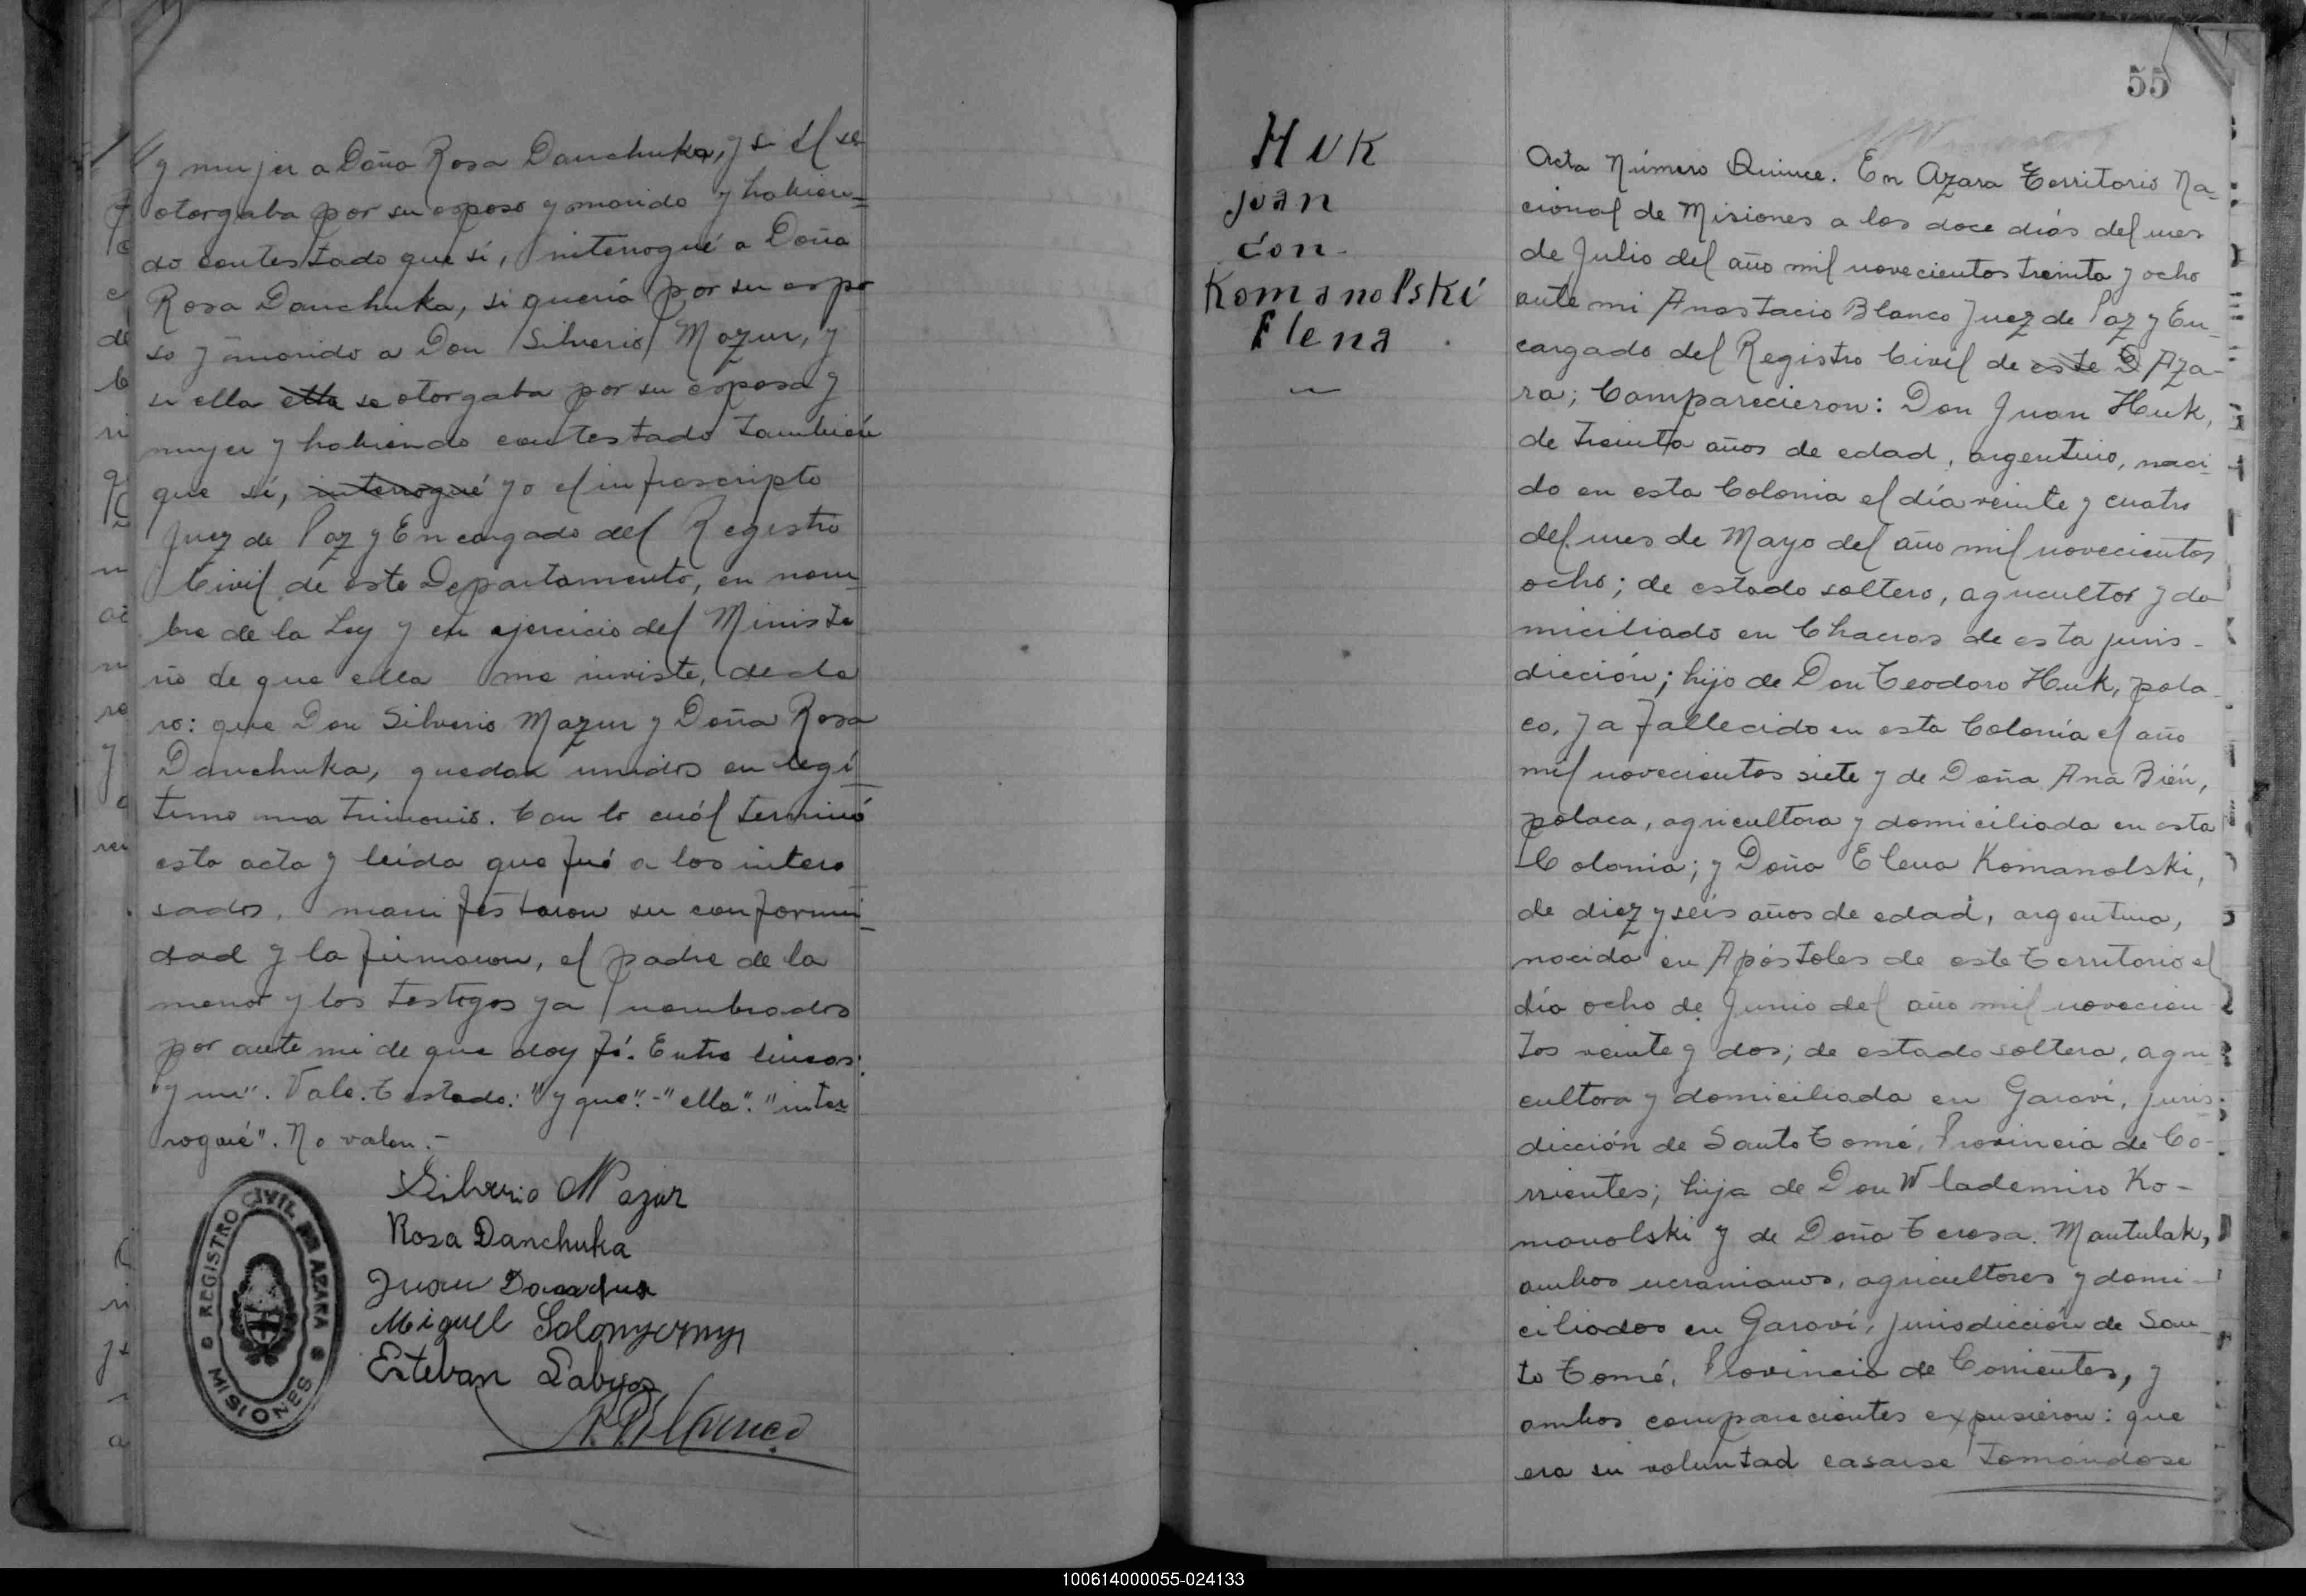 y mujer a Doña Rosa Danchuka, y si él se
otorgaba por su esposo y marido y habien=
do contestado que sí, interrogué a Doña
Rosa Danchuka, si quería por su espo
so y marido a Don Silverio Mazur, y
si ella ella se otorgaba por su esposa y
mujer y habiendo contestado también
que sí, interrogué yo el infrascripto
Juez de Paz y Encargado del Registro
Civil de este Departamento, en nom_
bre de la Ley y en ejercicio del Ministe_
rio de que ella me inviste, decla
ro: que Don Silverio Mazur y Doña Rosa
Danchuka, quedan unidos en legí
timo matrimonio. Con lo cuál terminó
esta acta y leída que fué a los intere
sados, manifestaron su conformi
dad y la firmaron, el padre de la
menor y los testigos ya nombrados
por ante mi de que doy fé. Entre lineas:
"y mu". Vale. Testado: "y que".-"ella". "inter
rogué". No valen.-
Silverio Mazur
Rosa Danchuka
Juan
Miguel
Esteban
A. Blanco
REGISTRO CIVIL DE AZARA
MISIONES
55
HUK
Juan
con-
Komanolski
Elena
Acta Número Quince. En Azara Territorio Na_
cional de Misiones a los doce días del mes
de Julio del año mil novecientos treinta y ocho
ante mi Anastacio Blanco Juez de Paz y En_
cargado del Registro Civil de este D Aza-
ra; Comparecieron: Don Juan Huk,
de treinta años de edad, argentino, naci-
do en esta Colonia el día veinte y cuatro
del mes de Mayo del año mil novecientos
ocho; de estado soltero, agricultor y do
miciliado en Chacras de esta juris-
dicción; hijo de Don Teodoro Huk, pola-
co, ya fallecido en esta Colonia el año
mil novecientos siete y de Doña Ana Bién,
polaca, agricultora y domiciliada en esta
Colonia; y Doña Elena Komanolski,
de diez y seis años de edad, argentina,
nacida en Apóstoles de este Territorio el
día ocho de Junio del año mil novecien
tos veinte y dos; de estado soltera, agri
cultora y domiciliada en Garaví, juris-
dicción de Santo Tomé, Provincia de Co-
rrientes; hija de Don Wlademiro Ko-
manolski y de Doña Teresa Mantulak,
ambos ucranianos, agricultores y domi-
ciliados en Garaví, jurisdicción de San_
to Tomé, Provincia de Corrientes, y
ambos comparecientes expusieron: que
era su voluntad casarse tomándose
100614000055-024133